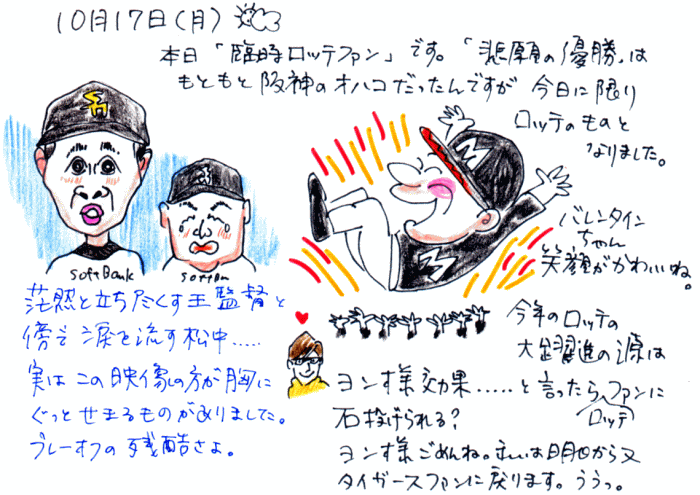 10月17日(月)
本日「臨時ロッテファン」です。「悲願の優勝」は
もともと阪神のオハコだったんですが 今日に限り
ロッテのものと
なりました。
バレンタイン
ちゃん
笑顔がかわいいね。
SoftBank
茫然と立ち尽くす王監督と
傍で涙を流す松中.....
実はこの映像の方が胸に
ぐっとせまるものがありました。
プレーオフの残酷さよ。
今年のロッテの
大躍進の源は
ヨン様効果.....と言ったらファンに
ロッテ
石投げられる?
ヨン様ごめんね。 明日から又
タイガースファンに戻ります。ううっ。